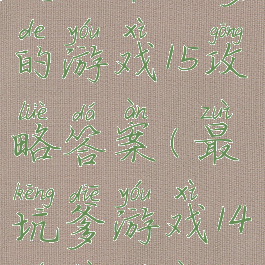 de yóu xì gōng
的游戏15攻
lüè dá àn zuì
略答案(最
kēng diē yóu xì
坑爹游戏14